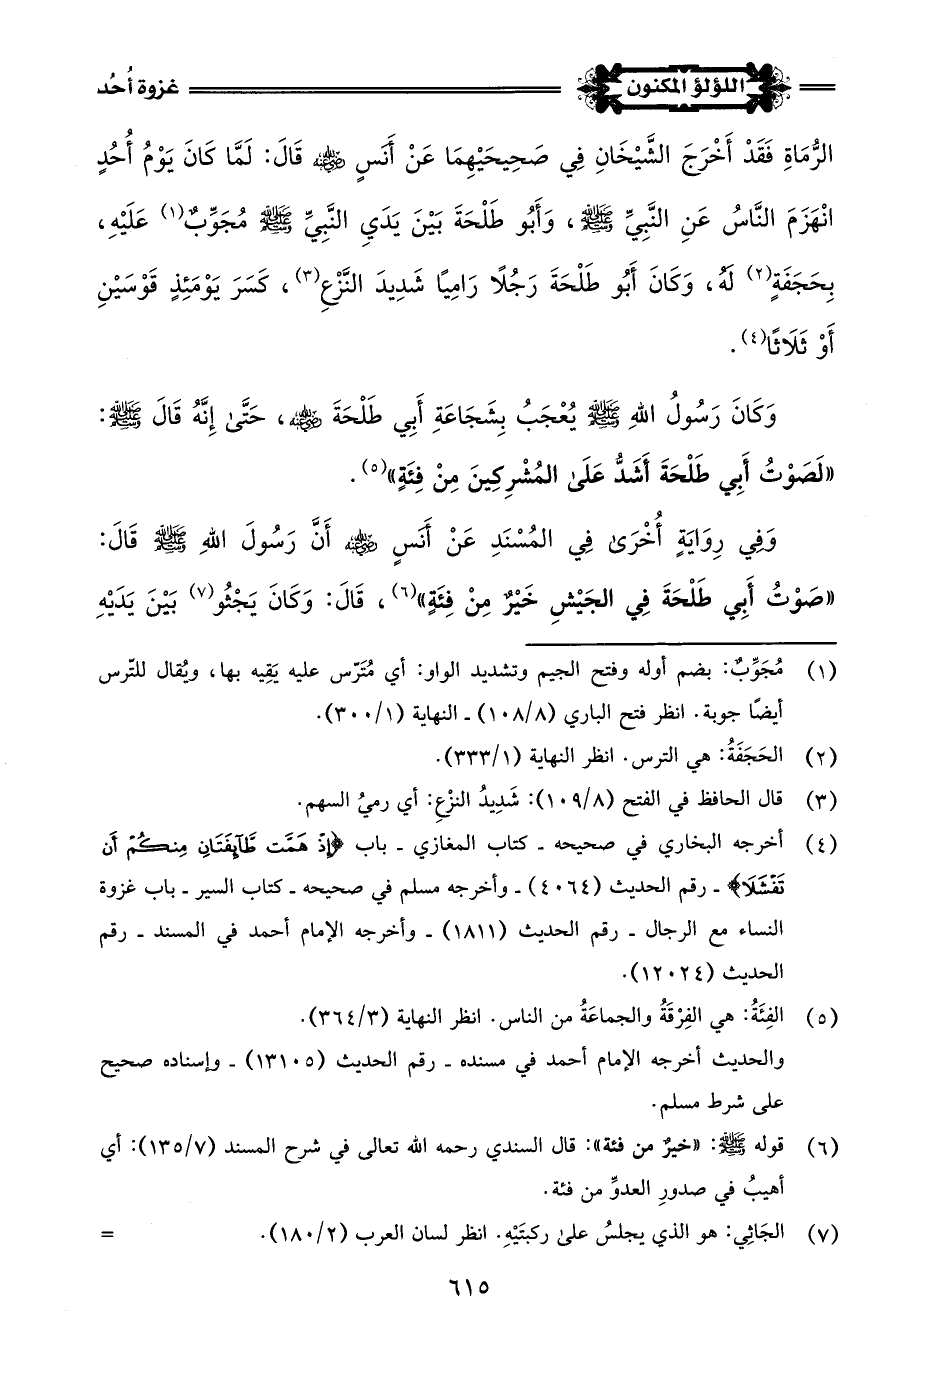 اللؤلؤ المكنون
غزوة أُحُد
الرُّمَاةِ فَقَدْ أَخْرَجَ الشَّيْخَانِ فِي صَحِيحَيْهِمَا عَنْ أَنَسٍ رضي الله عنه قَالَ: لَمَّا كَانَ يَوْمُ أُحُدٍ
انْهَزَمَ النَّاسُ عَنِ النَّبِيِّ ﷺ، وَأَبُو طَلْحَةَ بَيْنَ يَدَيِ النَّبِيِّ ﷺ مُجَوِّبٌ(١) عَلَيْهِ،
بِحَجَفَةٍ(٢) لَهُ، وَكَانَ أَبُو طَلْحَةَ رَجُلًا رَامِيًا شَدِيدَ النَّزْعِ(٣)، كَسَرَ يَوْمَئِذٍ قَوْسَيْنِ
أَوْ ثَلَاثًا(٤).
وَكَانَ رَسُولُ اللهِ ﷺ يُعْجَبُ بِشَجَاعَةِ أَبِي طَلْحَةَ رضي الله عنه، حَتَّىٰ إِنَّهُ قَالَ ﷺ:
«لَصَوْتُ أَبِي طَلْحَةَ أَشَدُّ عَلَىٰ المُشْرِكِينَ مِنْ فِئَةٍ»(٥).
وَفِي رِوَايَةٍ أُخْرَىٰ فِي المُسْنَدِ عَنْ أَنَسٍ رضي الله عنه أَنَّ رَسُولَ اللهِ ﷺ قَالَ:
«صَوْتُ أَبِي طَلْحَةَ فِي الجَيْشِ خَيْرٌ مِنْ فِئَةٍ»(٦)، قَالَ: وَكَانَ يَجْثُو(٧) بَيْنَ يَدَيْهِ
(١) مُجَوِّبٌ: بضم أوله وفتح الجيم وتشديد الواو: أي مُتَرّس عليه يَقِيه بها، ويُقال للتّرس
أيضًا جوبة. انظر فتح الباري (١٠٨/٨) ـ النهاية (٣٠٠/١).
(٢) الحَجَفَةُ: هي الترس. انظر النهاية (٣٣٣/١).
(٣) قال الحافظ في الفتح (١٠٩/٨): شَدِيدُ النزْعِ: أي رميُ السهم.
(٤) أخرجه البخاري في صحيحه ـ كتاب المغازي ـ باب ﴿إِذْ هَمَّت طَّآئِفَتَانِ مِنكُمْ أَن
تَفْشَلَا﴾ ـ رقم الحديث (٤٠٦٤) ـ وأخرجه مسلم في صحيحه ـ كتاب السير ـ باب غزوة
النساء مع الرجال ـ رقم الحديث (١٨١١) ـ وأخرجه الإمام أحمد في المسند ـ رقم
الحديث (١٢٠٢٤).
(٥) الفِئَةُ: هي الفِرْقَةُ والجماعَةُ من الناس. انظر النهاية (٣٦٤/٣).
والحديث أخرجه الإمام أحمد في مسنده ـ رقم الحديث (١٣١٠٥) ـ وإسناده صحيح
على شرط مسلم.
(٦) قوله ﷺ: «خيرٌ من فئة»: قال السندي رحمه الله تعالى في شرح المسند (١٣٥/٧): أي
أهيبُ في صدورِ العدوِّ من فئة.
(٧) الجَاثِي: هو الذي يجلسُ علىٰ ركبتَيْهِ. انظر لسان العرب (١٨٠/٢). =
٦١٥